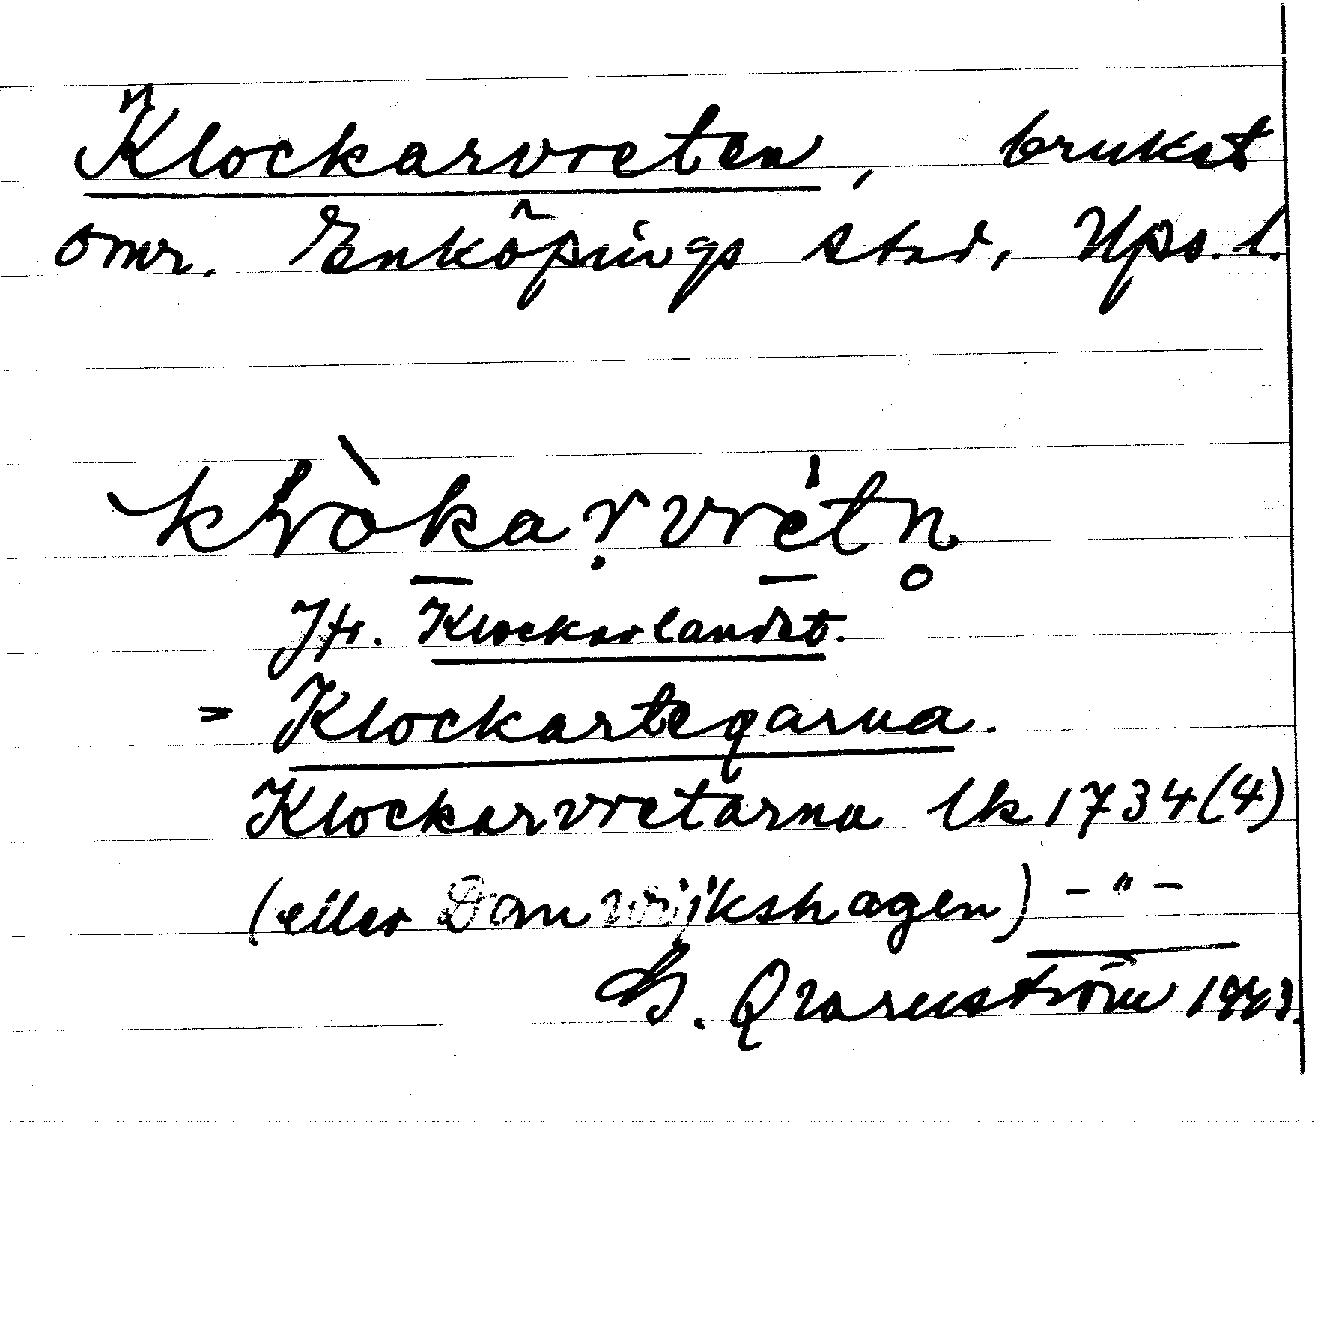 Klockarvreten, brukat
omr. Enköpings stad, Ups. l.
klòkaṛvrétn̥
Jfr. Klockarlandet.
= Klockartegarna.
Klockarvretarna lk 1734 (4)
(eller Dam vrijkshagen) -"-
G. Qvarnström 1943.